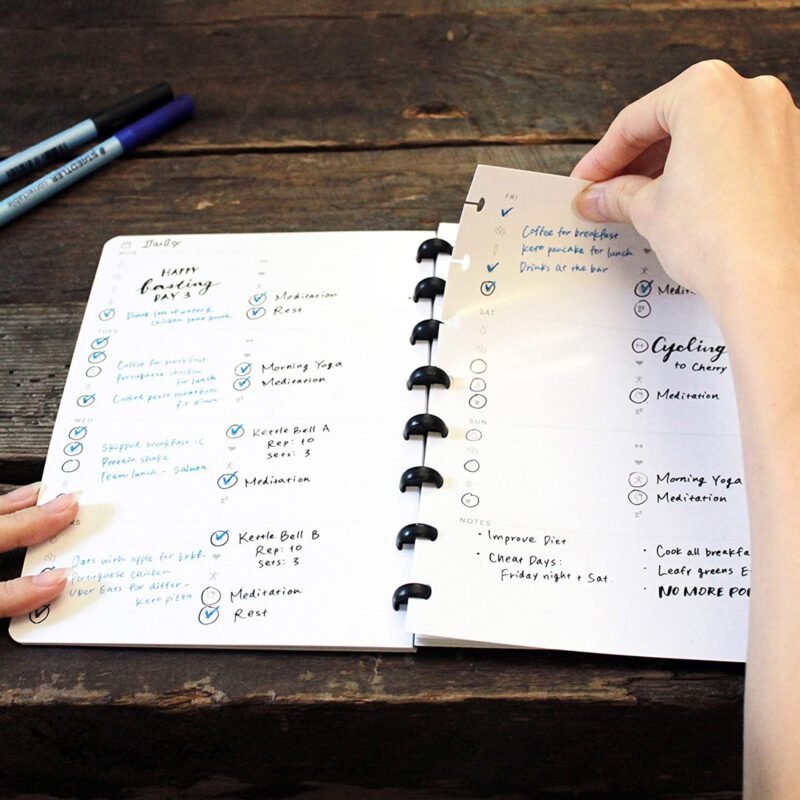 STAEDTLER correctable
Daily
MON
HAPPY
fasting
DAY 3
Drank lots of water &
chicken bone broth
Meditation
Rest
TUES
Coffee for breakfast
Portuguese chicken
for lunch
Cooked pesto meatballs
for dinner
Morning Yoga
Meditation
WED
Skipped breakfast :c
Protein shake
Team lunch - Salmon
Kettle Bell A
Rep: 10
Sets: 3
Meditation
Oats with apple for brkf.
Portuguese chicken
Uber Eats for dinner -
Keto pizza
Kettle Bell B
Rep: 10
Sets: 3
Meditation
Rest
FRI
Coffee for breakfast
Keto pancake for lunch
Drinks at the bar
SAT
Cycling
to Cherry
Meditation
SUN
Morning Yoga
Meditation
NOTES
• Improve Diet
• Cheat Days:
Friday night + Sat.
• Cook all
• Leafy greens
• NO MORE